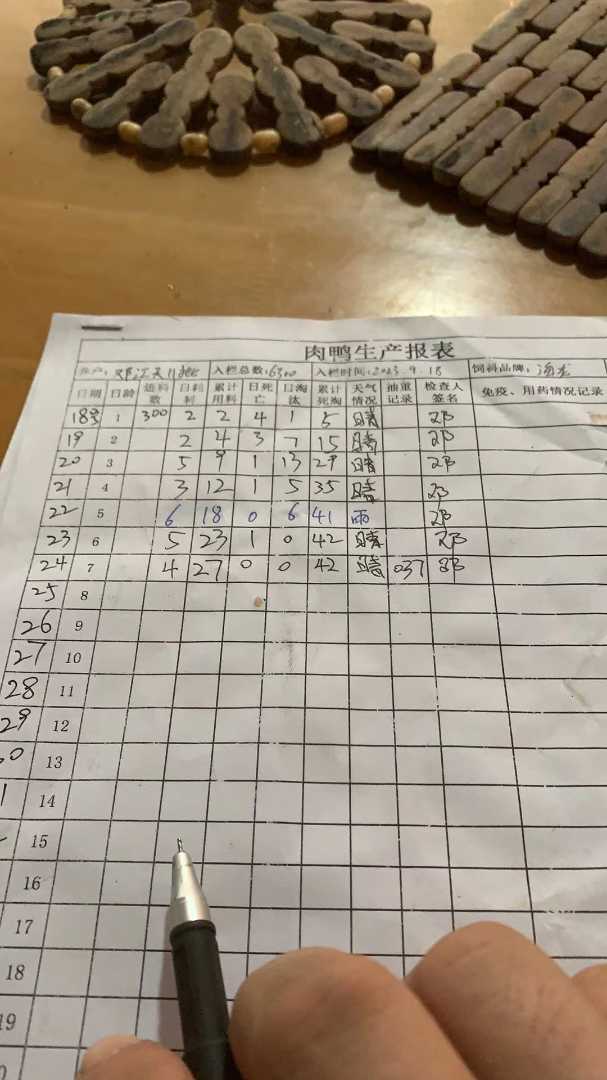 肉鸭生产报表
养户: 邓江 入栏总数: 6300 入栏时间: 2023.9.18 饲料品牌:
日期 日龄 进料数 日耗料 累计用料 日死亡 日淘汰 累计死淘 天气情况 抽重记录 检查人签名 免疫、用药情况记录
18号 1 300 2 2 4 1 5 晴 邓
19 2 2 4 3 7 15 晴 邓
20 3 5 9 1 13 29 晴 邓
21 4 3 12 1 5 35 晴 邓
22 5 6 18 0 6 41 雨 邓
23 6 5 23 1 0 42 晴 邓
24 7 4 27 0 0 42 晴 037 邓
25 8
26 9
27 10
28 11
29 12
0 13
1 14
15
16
17
18
19
0